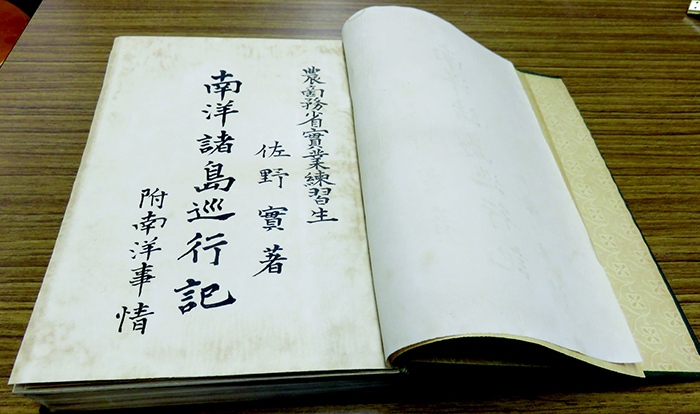 農商務省實業練習生
佐野實著
南洋諸島巡行記
附南洋事情